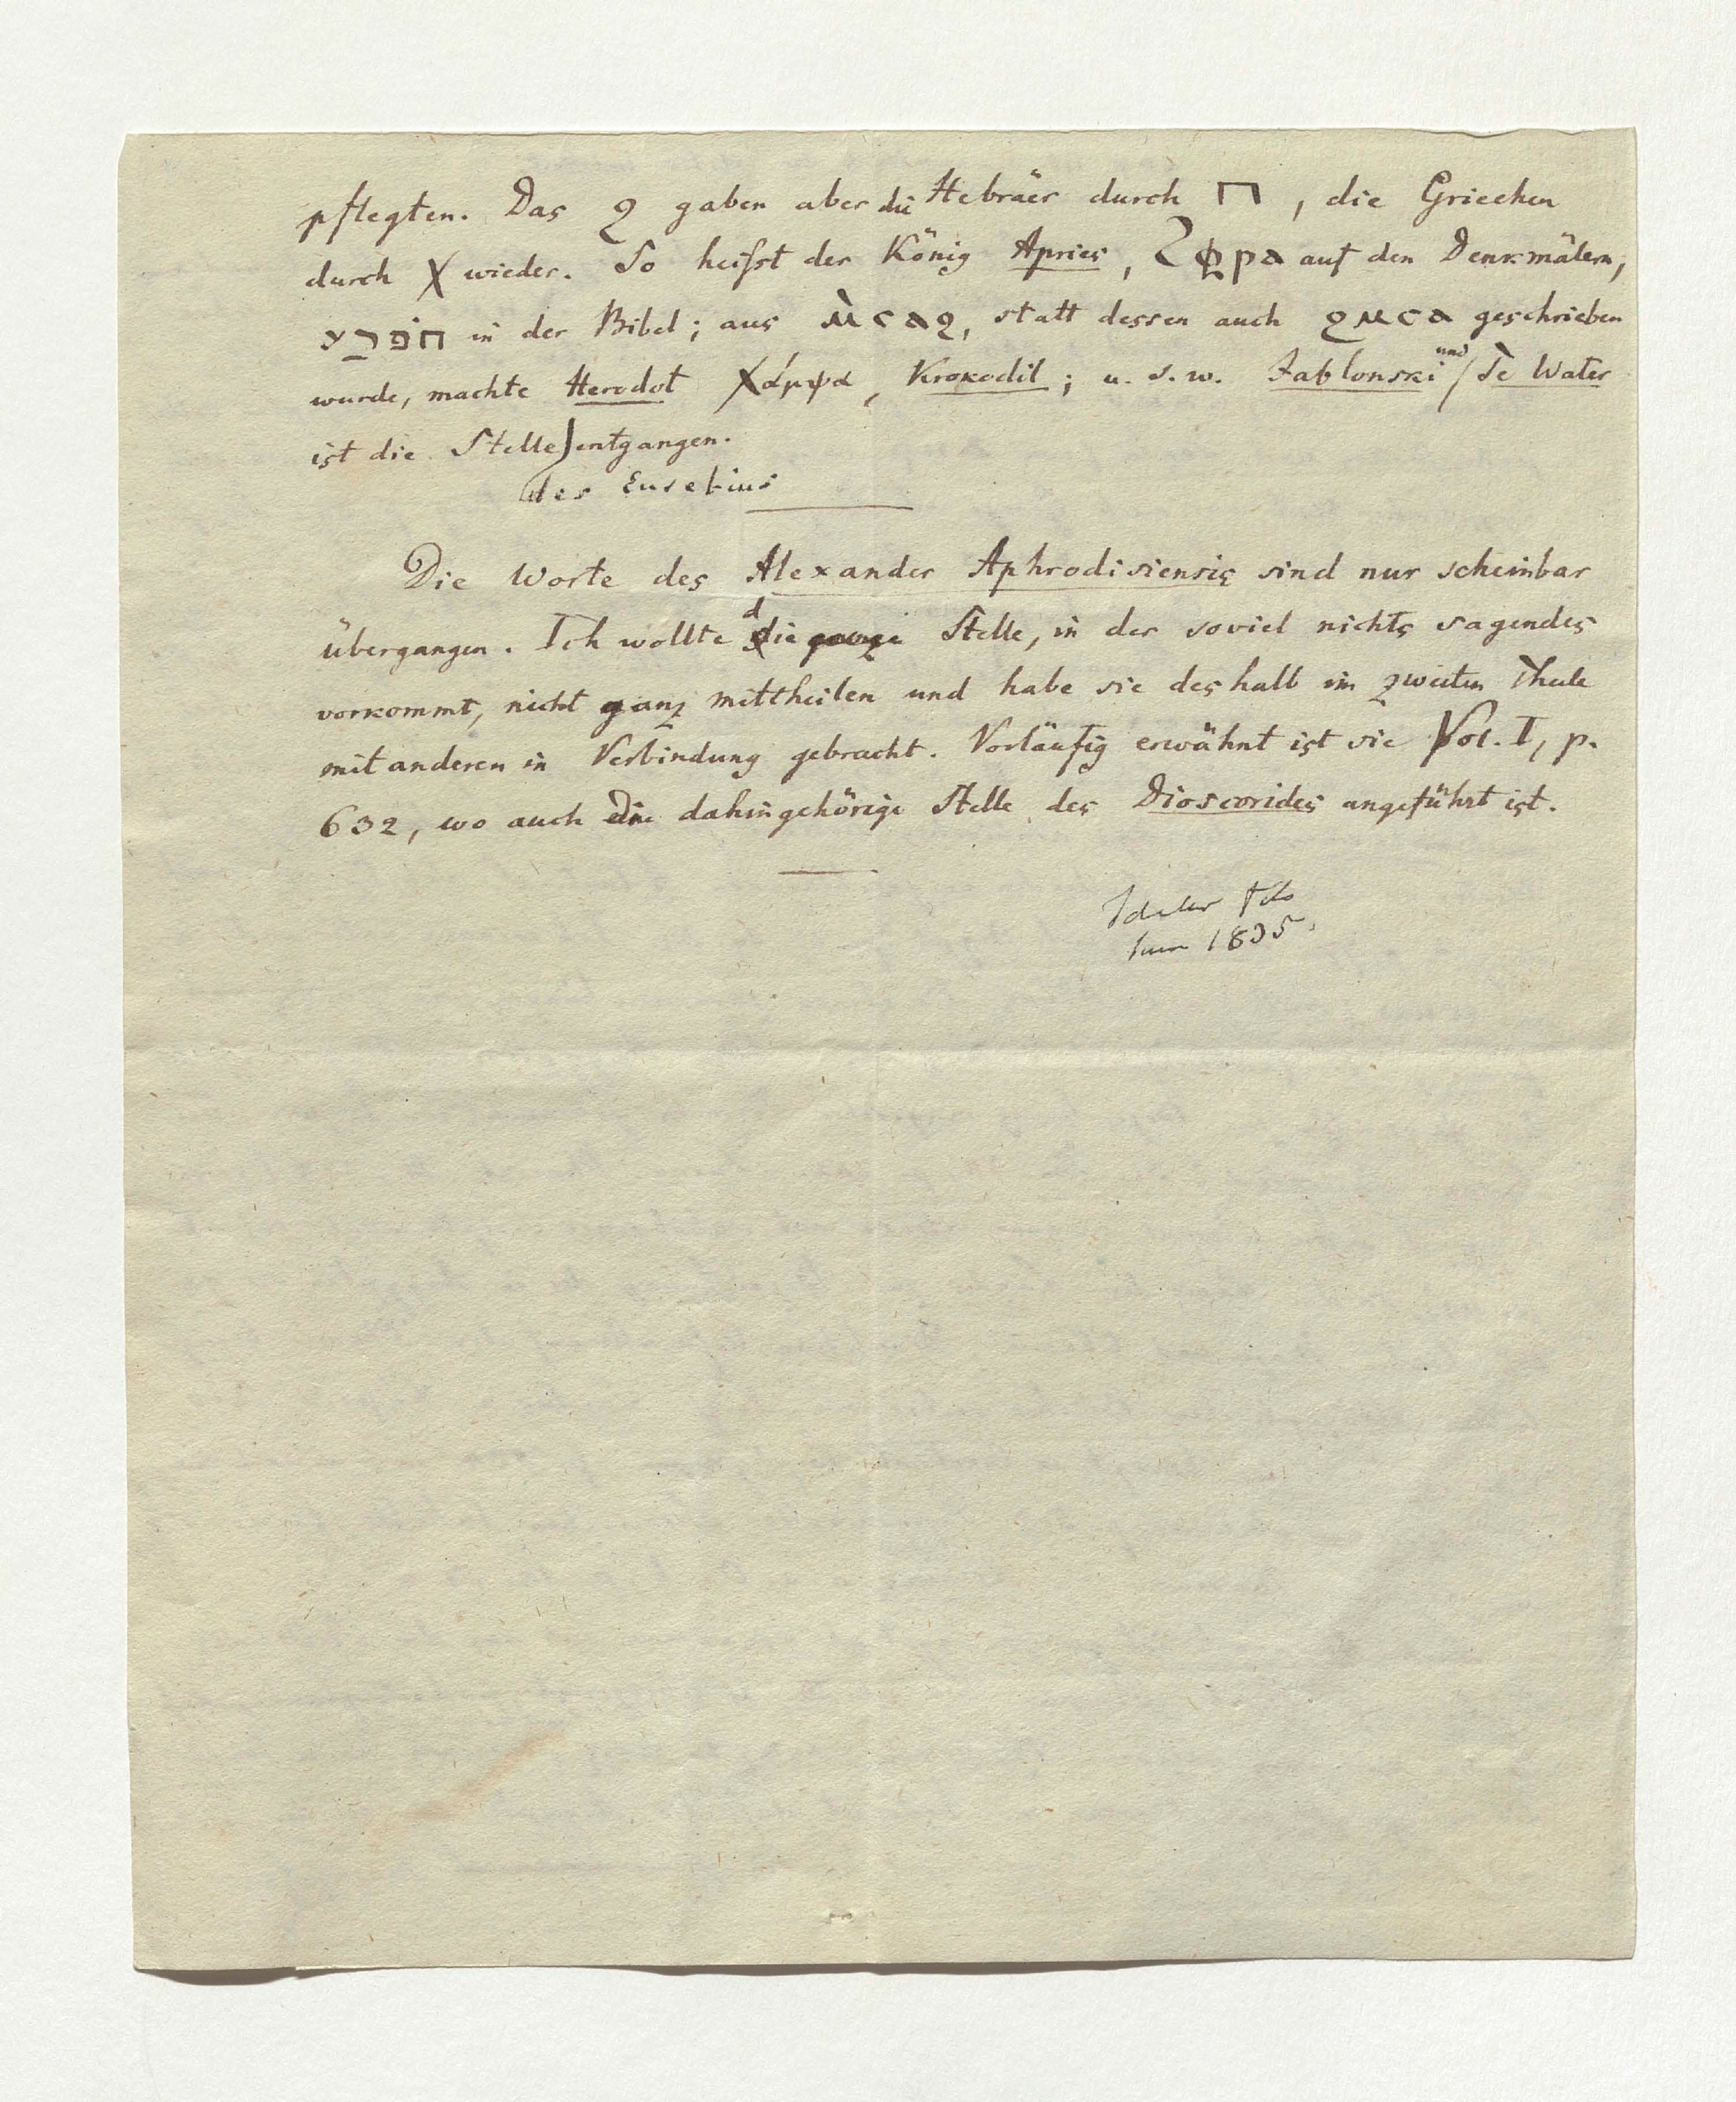 pflegten. Das ϩ gaben aber die Hebräer durch ח, die Griechen
durch χ wieder. So heifst der König Apries, ϩⲫⲣⲁ auf den Denkmälern,
חׇפְרַע in der Bibel; aus ⲙ̀ⲥⲁϩ, statt dessen auch ϩⲙⲥⲁ geschrieben
wurde, machte Herodot χάμψα, Krokodil; u. s. w. Jablonski und Te Water
ist die Stelle entgangen.
des Eusebius
Die Worte des Alexander Aphrodisiensis sind nur scheinbar
übergangen. Ich wollte die ganze Stelle, in der soviel nichts sagendes
vorkommt, nicht ganz mittheilen und habe sie deshalb im zweiten Theile
mit anderen in Verbindung gebracht. Vorläufig erwähnt ist sie Vol. I, p.
632, wo auch die dahingehörige Stelle des Dioscorides angeführt ist.
Ideler
1835.